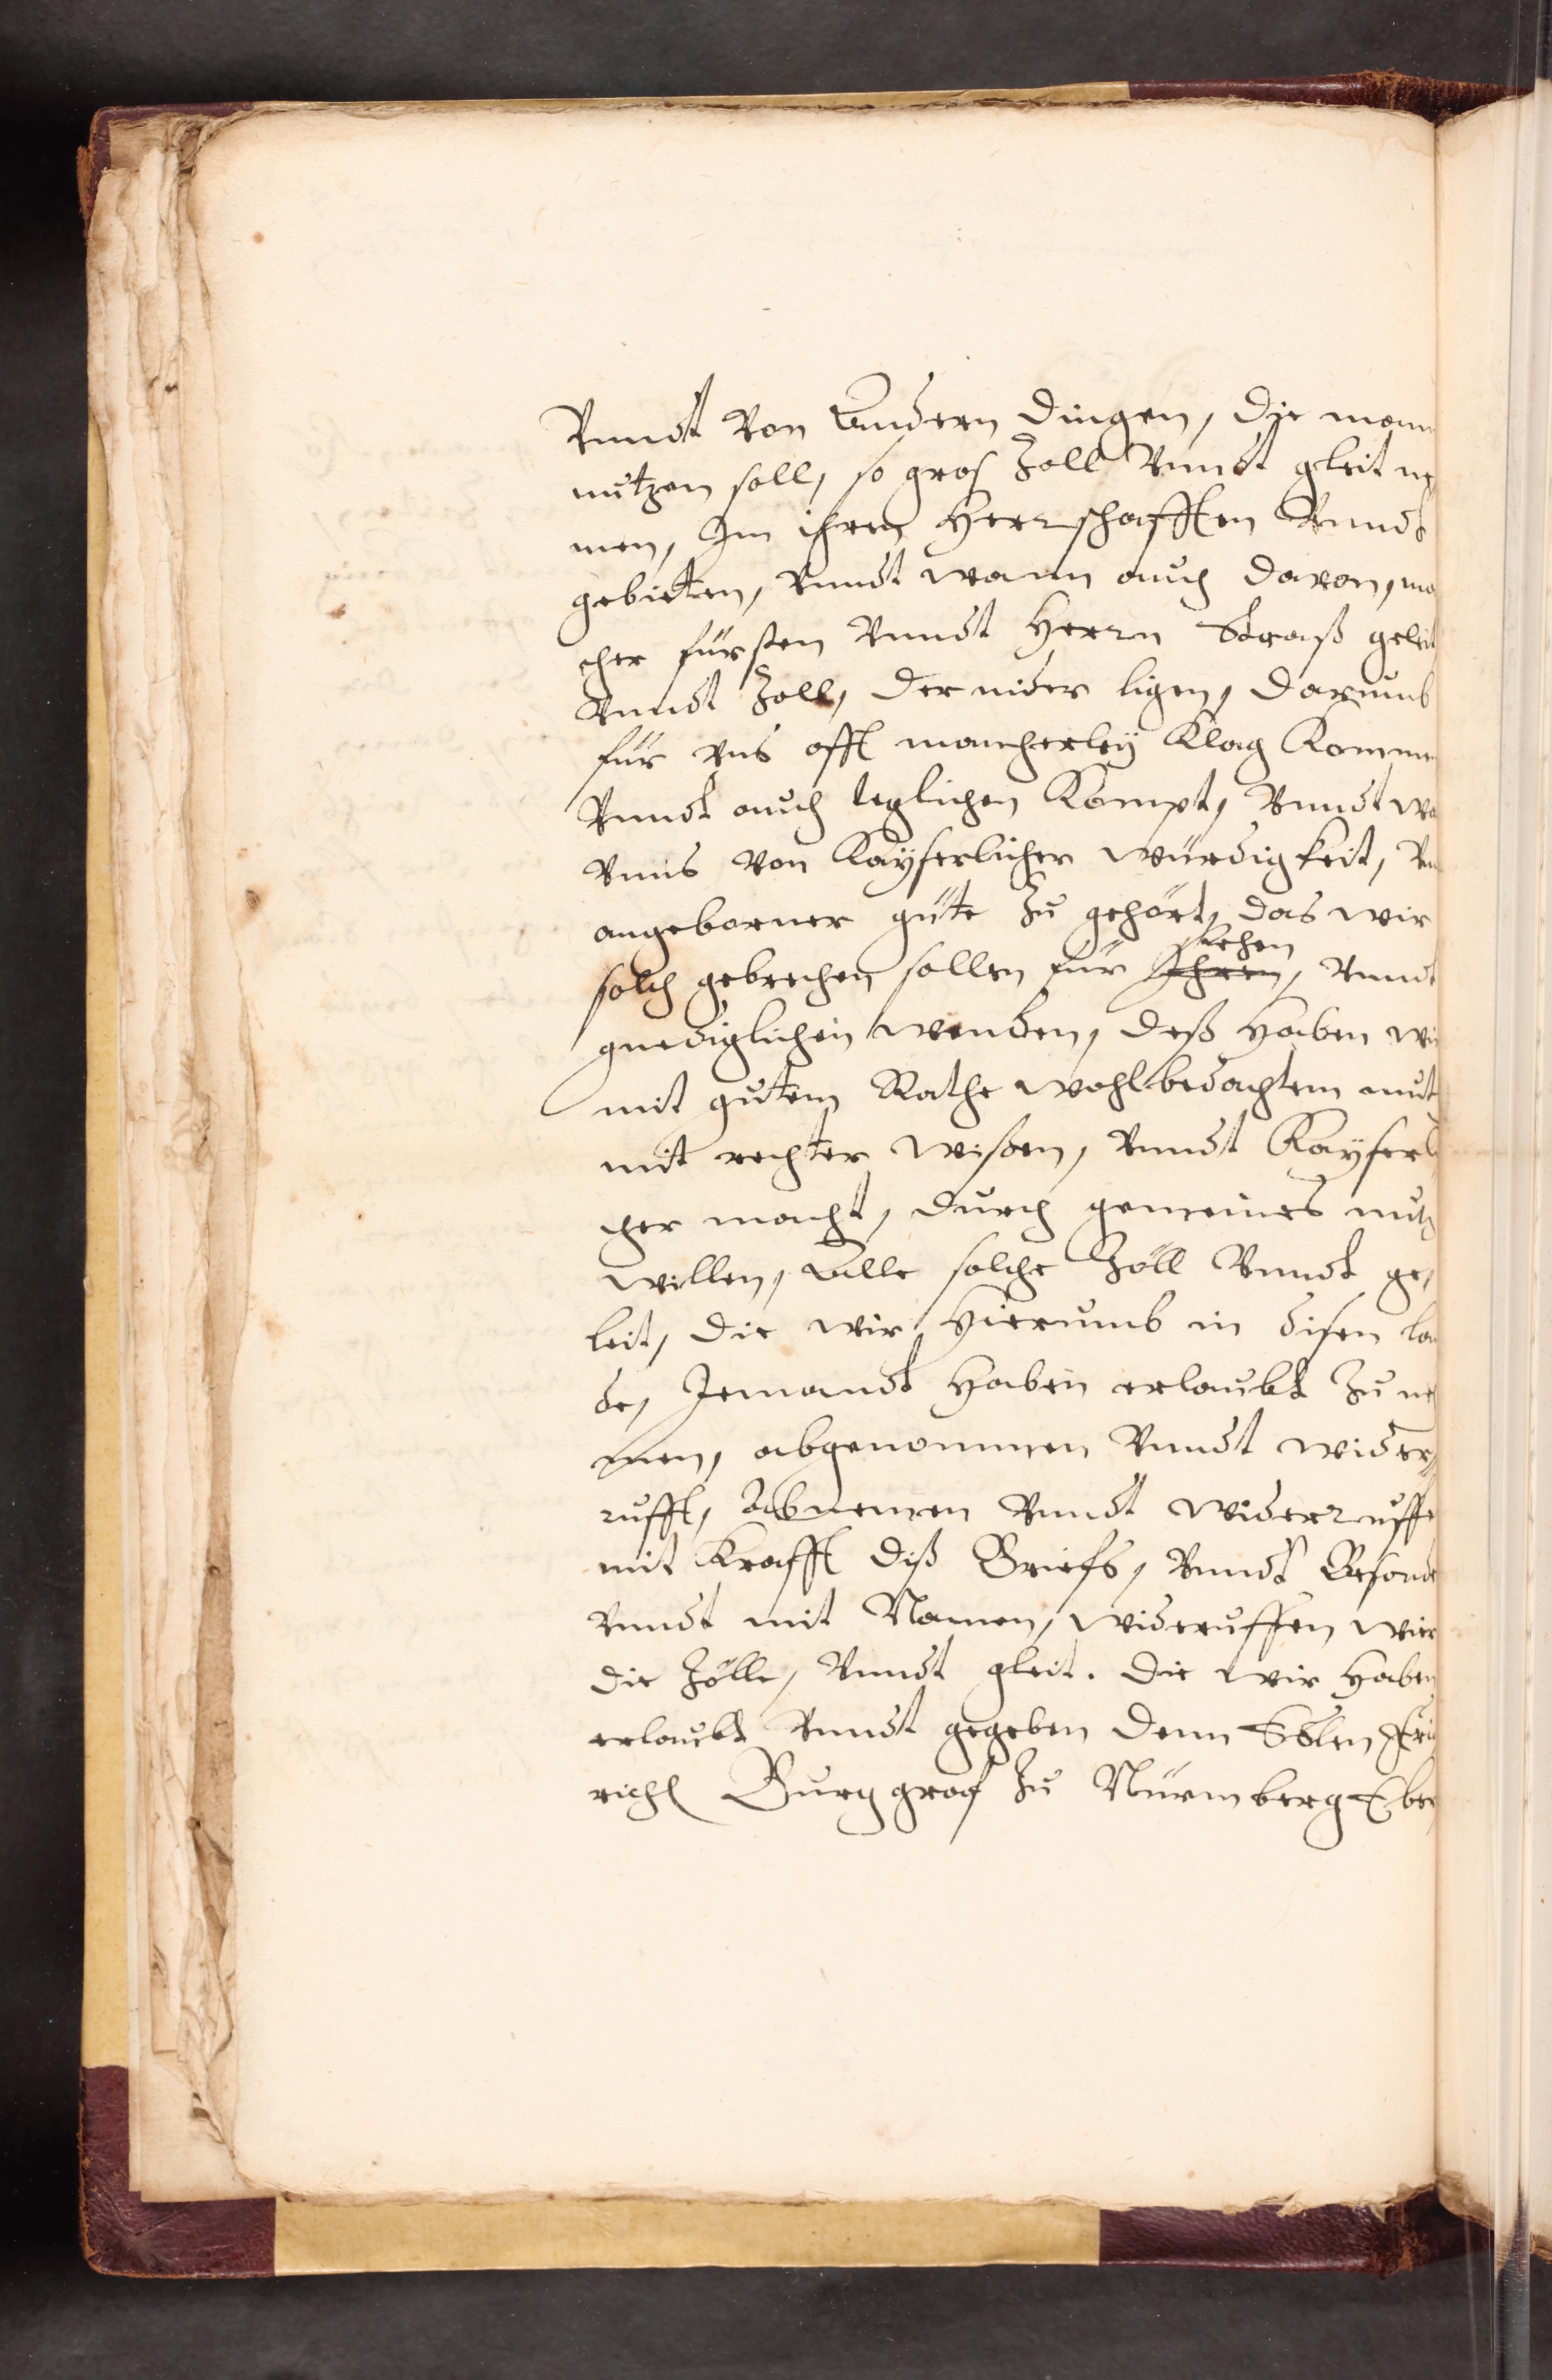 Vnndt Von Anndern dingen, die mann
nutzen soll, so gros Zoll Vnndt gleit ne
men, Im ihren Herrschafften Vnndt
gebieten, Vnndt wann auch davon, ma
cher fürsten Vnndt Herrn Straß geleit
Vnndt Zoll, der nider ligen, darumb
für vns offt mancherleÿ Klag Komme
Vnndt auch teglichen Kompt, Vnndt wa
Vnns von Kaÿserlicher würdigkeit, Vn
angeborner güte Zu gehört, das wir
sehen
solch gebrechen sollen für Ihren, Vnndt
gnediglichen wenden, deß haben wir
mit gutem Rathe wohlbedachtem mut
mit rechter wißen, Vnndt Kaÿserli
cher macht, durch gemeines nutz
willen, Alle solche Zöll Vnndt ge,
leit, die wir hierumb in disen lan
de, Jemandt haben erlaubt Zu ne
men, abgenommen Vnndt wider,
rufft, Abnemen Vnndt widerruffe
mit Krafft diß Briefs, Vnndt Besonde
Vnndt mit Namen, widerruffen wir
die Zölle, Vnndt gleit. die wir haben
erlaubt Vnndt gegeben denn Edlen Frid
rich Burggraf Zu Nürmberg Eber